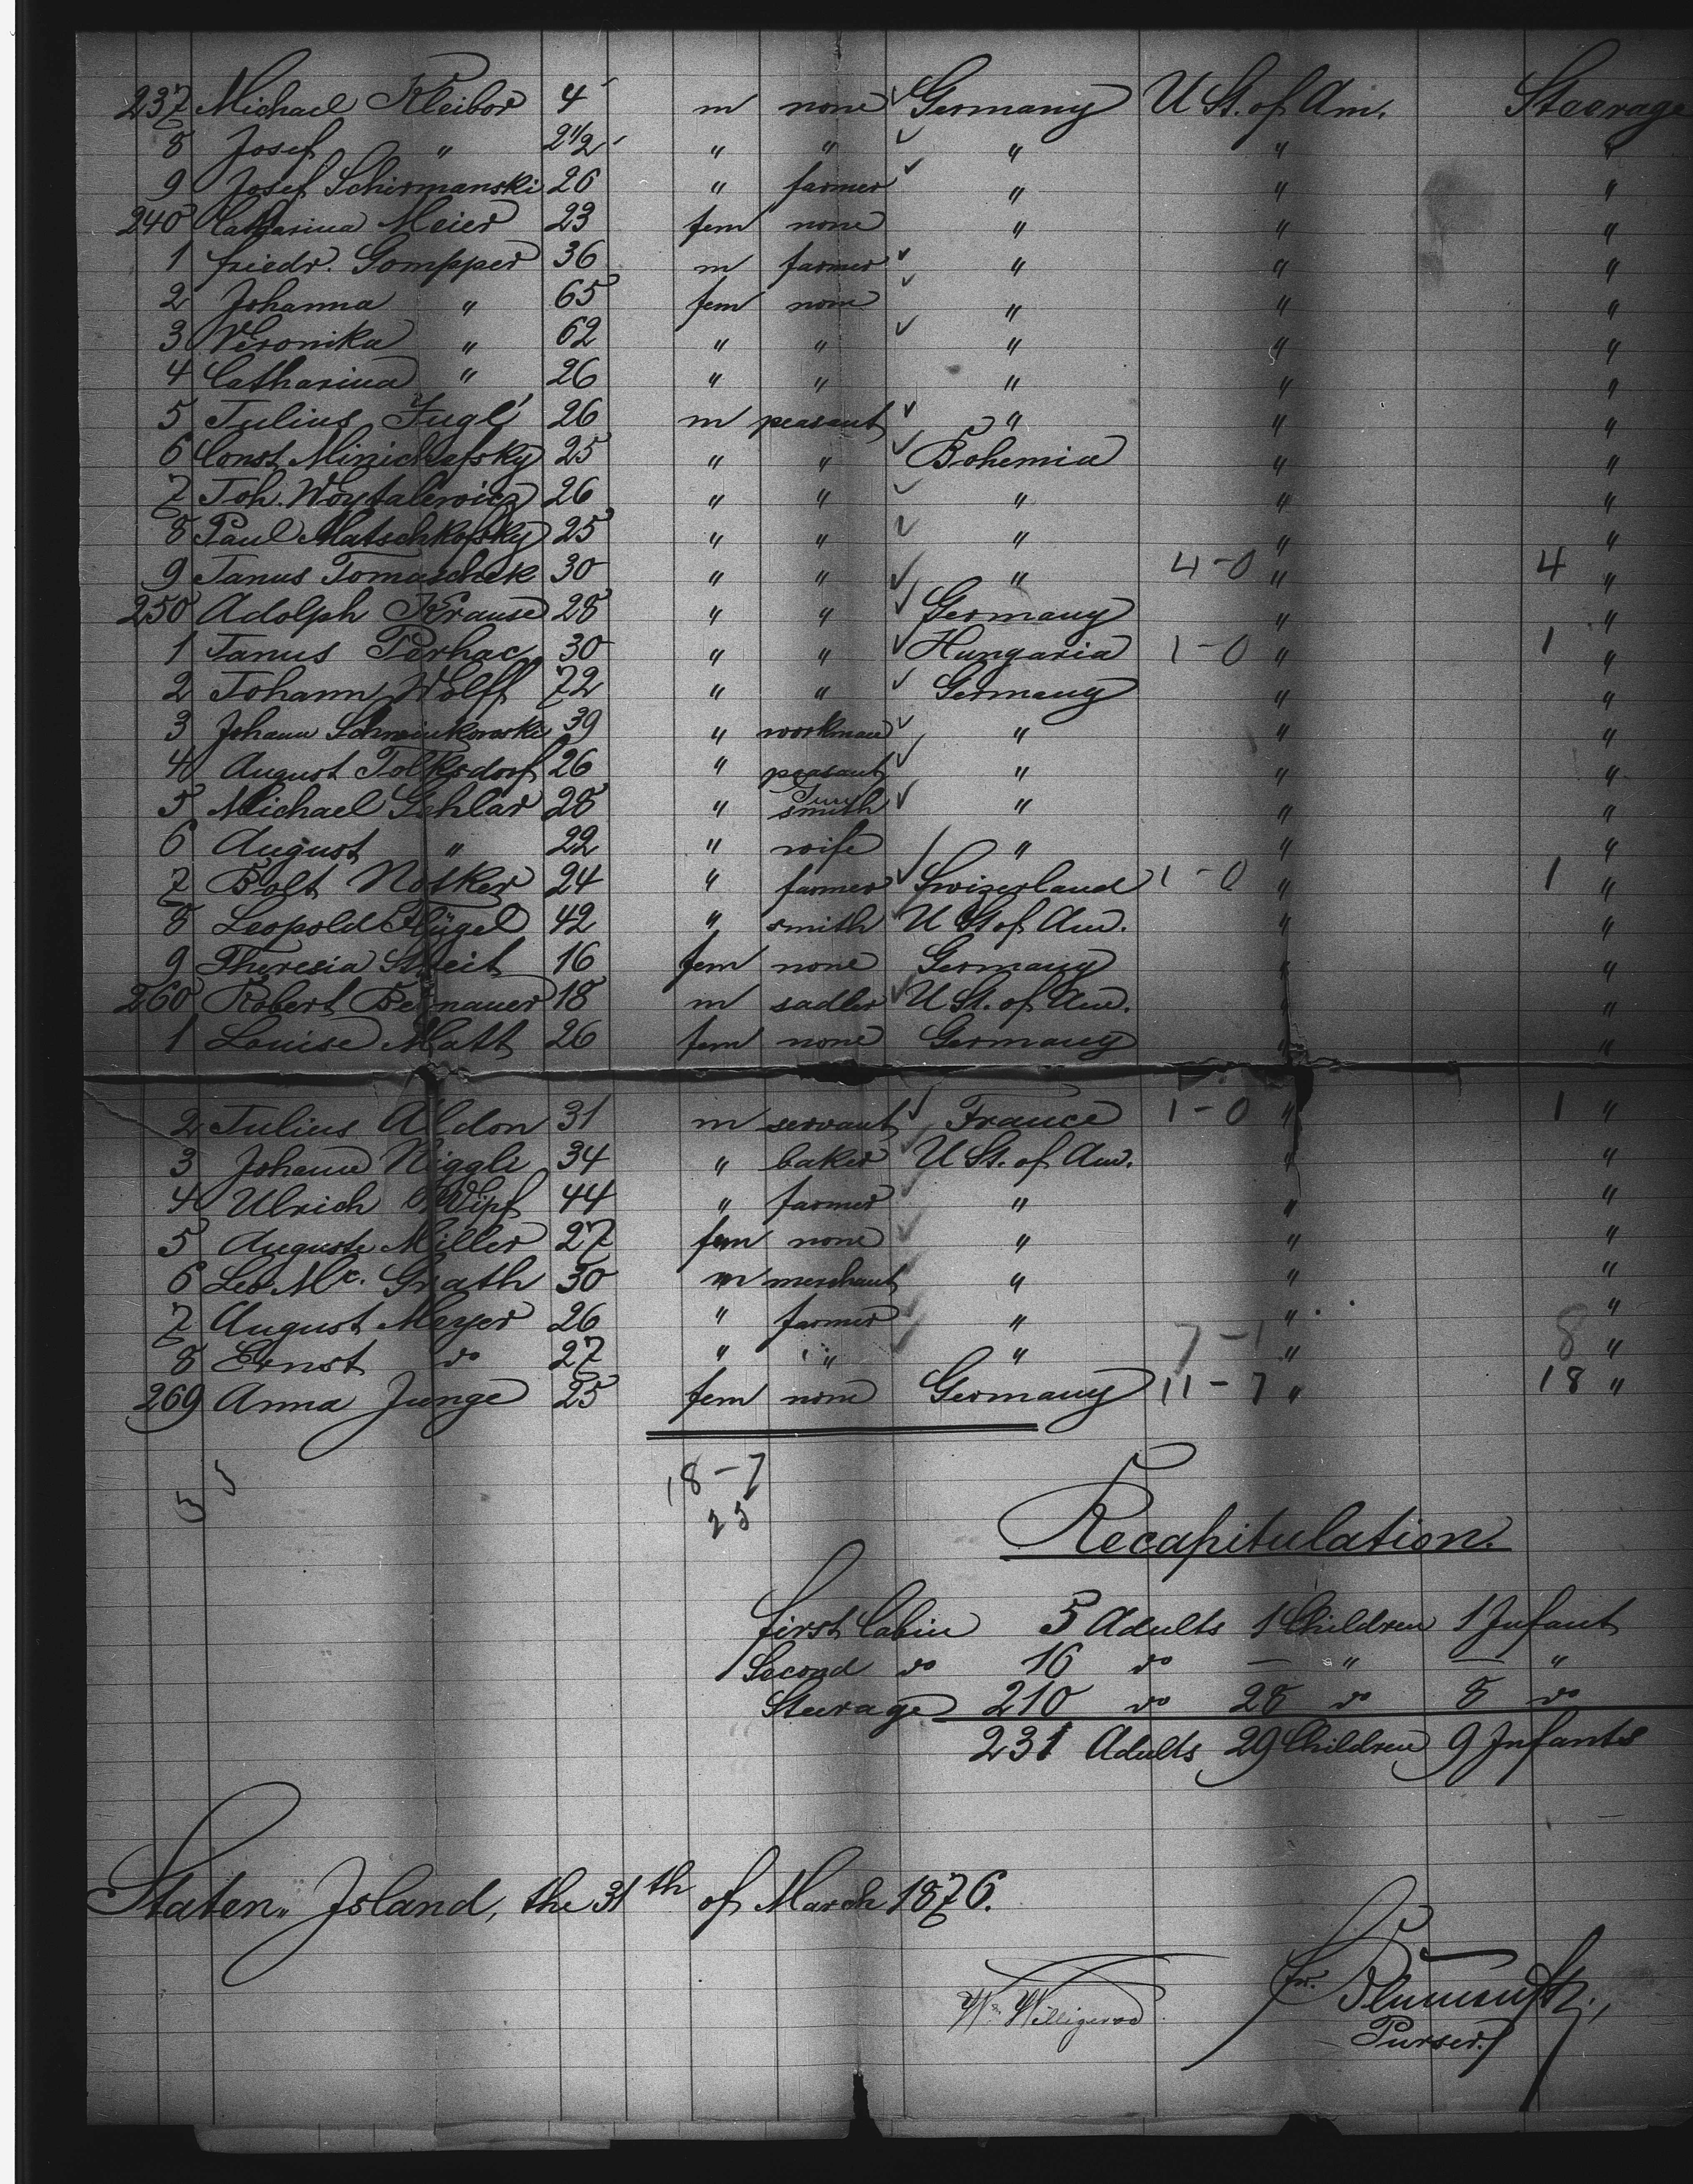 237 Michael Kleibor 4 m none Germany U St. of Am. Steerage
8 Josef " 2 1/2 " " " " "
9 Josef Schirmanski 26 " farmer " " "
240 Catharina Meier 23 fem none " " "
1 Friedr. Gompper 36 m farmer " " "
2 Johanna " 65 fem none " " "
3 Veronika " 62 " " " " "
4 Catharina " 26 " " " " "
5 Julius Jugl 26 m peasant " " "
6 Const. 25 " " Bohemia " "
7 Joh. Woytalewicz 26 " " " " "
8 Paul Matschkofsky 25 " " " " "
9 Janus Tomaschek 30 " " " 4-0 " 4 "
250 Adolph Krause 28 " " Germany " "
1 Janus Perhac 30 " " Hungaria 1-0 " 1 "
2 Johann Wolff 72 " " Germany " "
3 Johann Schwinkowski 39 " workman " " "
4 August Tolksdorf 26 " peasant " " "
5 Michael Schlar 28 " smith " " "
6 August " 22 " wife " " "
7 Bolt Notker 24 " farmer Swizerland 1-0 " 1 "
8 Leopold Flügel 42 " smith U St of Am. " "
9 Theresia Streit 16 fem none Germany " "
260 Robert Bernauer 18 m sadler U St. of Am. " "
1 Louise Matt 26 fem none Germany " "
2 Julius Aldon 31 m servant France 1-0 " 1 "
3 Johann Niggli 34 " baker U St. of Am. " "
4 Ulrich Wipf 44 " farmer " " "
5 Auguste Miller 27 fem none " " "
6 Leo Mc. Grath 30 m merchant " " "
7 August Meyer 26 " farmer " " "
8 Ernst do 27 " " " 7-1 " 8 "
269 Anna Junge 25 fem none Germany 11-7 " 18 "
18-7
25
Recapitulation.
First Cabin 5 Adults 1 Children 1 Infant
Second do 16 do — " — "
Steerage 210 do 28 do 8 do
231 Adults 29 Children 9 Infants
Staten Island, the 31th of March 1876.
W. Willigerod
Purser.